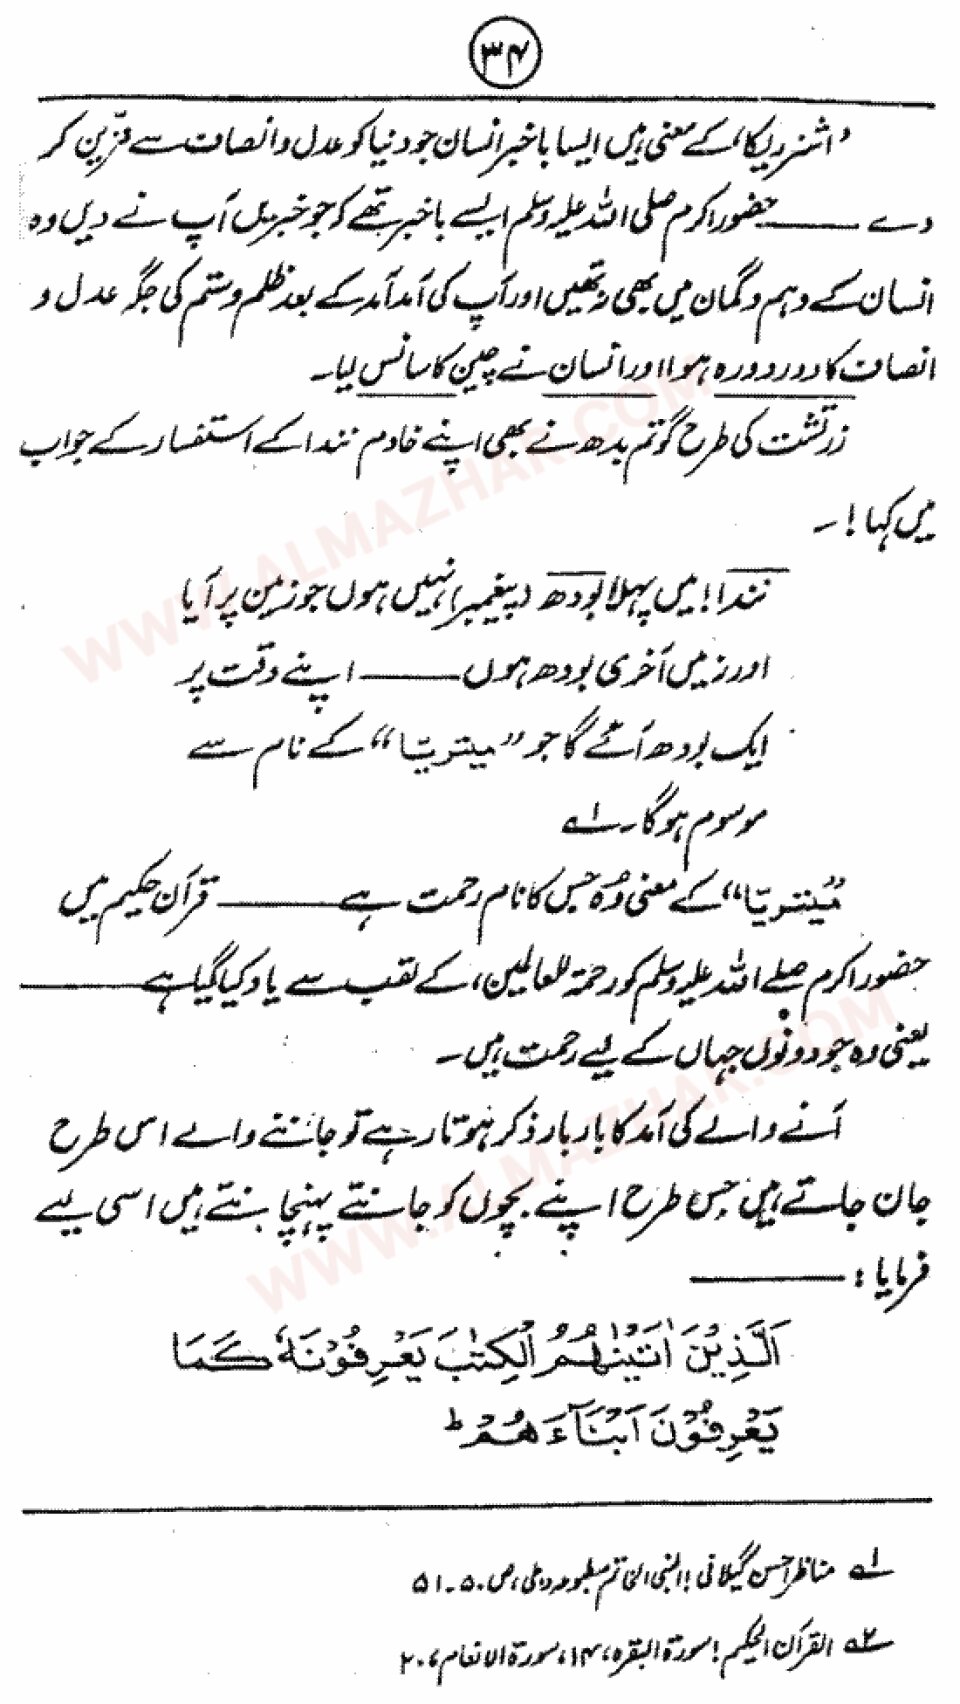 ۳۴
’اشنر دیکا‘ کے معنی ہیں ایسا باخبر انسان جو دنیا کو عدل و انصاف سے مزّین کر
دے ——— حضور اکرم صلی اللہ علیہ وسلم ایسے باخبر تھے کہ جو خبریں آپ نے دیں وہ
انسان کے وہم و گمان میں بھی نہ تھیں اور آپ کی آمد آمد کے بعد ظلم و ستم کی جگہ عدل و
انصاف کا دور دورہ ہوا اور انسان نے چین کا سانس لیا۔
زرتشت کی طرح گوتم بدھ نے بھی اپنے خادم نندا کے استفسار کے جواب
میں کہا!۔
نندا! میں پہلا بودھ (پیغمبر) نہیں ہوں جو زمین پر آیا
اور نہ میں آخری بودھ ہوں ——— اپنے وقت پر
ایک بودھ آئے گا جو ”میتریّا“ کے نام سے
موسوم ہوگا۔ ۱ے
”میتریّا“ کے معنی وُہ جس کا نام رحمت ہے ——— قرآن حکیم میں
حضور اکرم صلے اللہ علیہ وسلم کو رحمۃ للعالمین، کے لقب سے یاد کیا گیا ہے ———
یعنی وہ جو دونوں جہاں کے لیے رحمت ہیں۔
آنے والے کی آمد کا بار بار ذکر ہوتا رہے تو جاننے والے اس طرح
جان جاتے ہیں جس طرح اپنے بچوں کو جانتے پہنچانتے ہیں اسی لیے
فرمایا: ———
اَلَّذِیْنَ اٰتَیْنٰہُمُ الْکِتٰبَ یَعْرِفُوْنَہٗ کَمَا
یَعْرِفُوْنَ اَبْنَآءَ ہُمْ ط
۱ے مناظر احسن گیلانی! النبی الخاتم مطبوعہ دہلی، ص ۵۰۔۵۱
۲ے القرآن الحکیم! سورۃ البقرہ، ۱۴۶، سورۃ الانعام، ۲۰
WWW.ALMAZHAR.COM
WWW.ALMAZHAR.COM